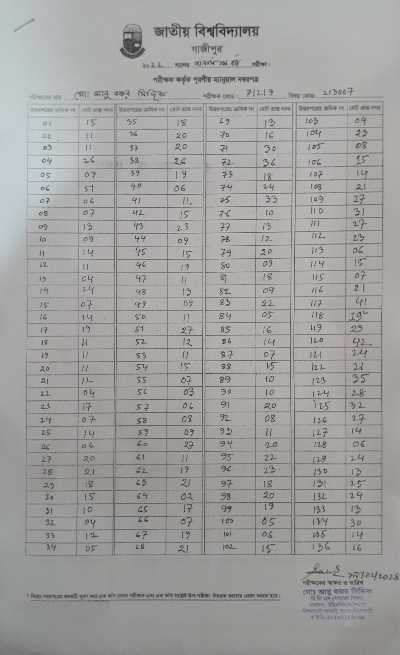 জাতীয় বিশ্ববিদ্যালয়
গাজীপুর
পরীক্ষক কর্তৃক পূরণীয় ম্যানুয়াল নম্বরপত্র
পরীক্ষকের নাম : মোঃ আবু বকর সিদ্দিক পরীক্ষক কোড : 71219 বিষয় কোড: 213807
01 15 35 18 69 13 103 09
02 11 36 20 70 16 104 23
03 11 37 20 71 30 105 08
04 26 38 26 72 36 106 25
05 09 39 19 73 18 107 14
06 51 40 06 74 24 108 21
07 06 41 11 75 33 109 27
08 07 42 15 76 10 110 31
09 13 43 23 77 13 111 27
10 09 44 09 78 12 112 23
11 14 45 15 79 20 113 06
12 11 46 19 80 09 114 15
13 04 47 11 81 18 115 07
14 24 48 13 82 09 116 21
15 07 49 09 83 22 117 41
16 14 50 11 84 05 118
17 19 51 27 85 16 119 29
18 11 52 12 86 14 120 42
19 11 53 11 87 07 121 24
20 11 54 15 88 15 122
21 12 55 07 89 10 123 35
22 04 56 03 90 10 124 28
23 17 57 06 91 20 125 32
24 07 58 08 92 08 126 27
25 14 59 09 93 11 127 14
26 06 60 27 94 20 128 06
27 20 61 11 95 22 129 24
28 21 62 19 96 23 130 13
29 18 63 21 97 18 131 25
30 15 64 02 98 20 132 24
31 10 65 17 99 19 133 13
32 04 66 07 100 05 134 30
33 12 67 19 101 06 135 14
34 05 68 21 102 15 136 16
পরীক্ষকের স্বাক্ষর ও তারিখ
মোঃ আবু বকর সিদ্দিক